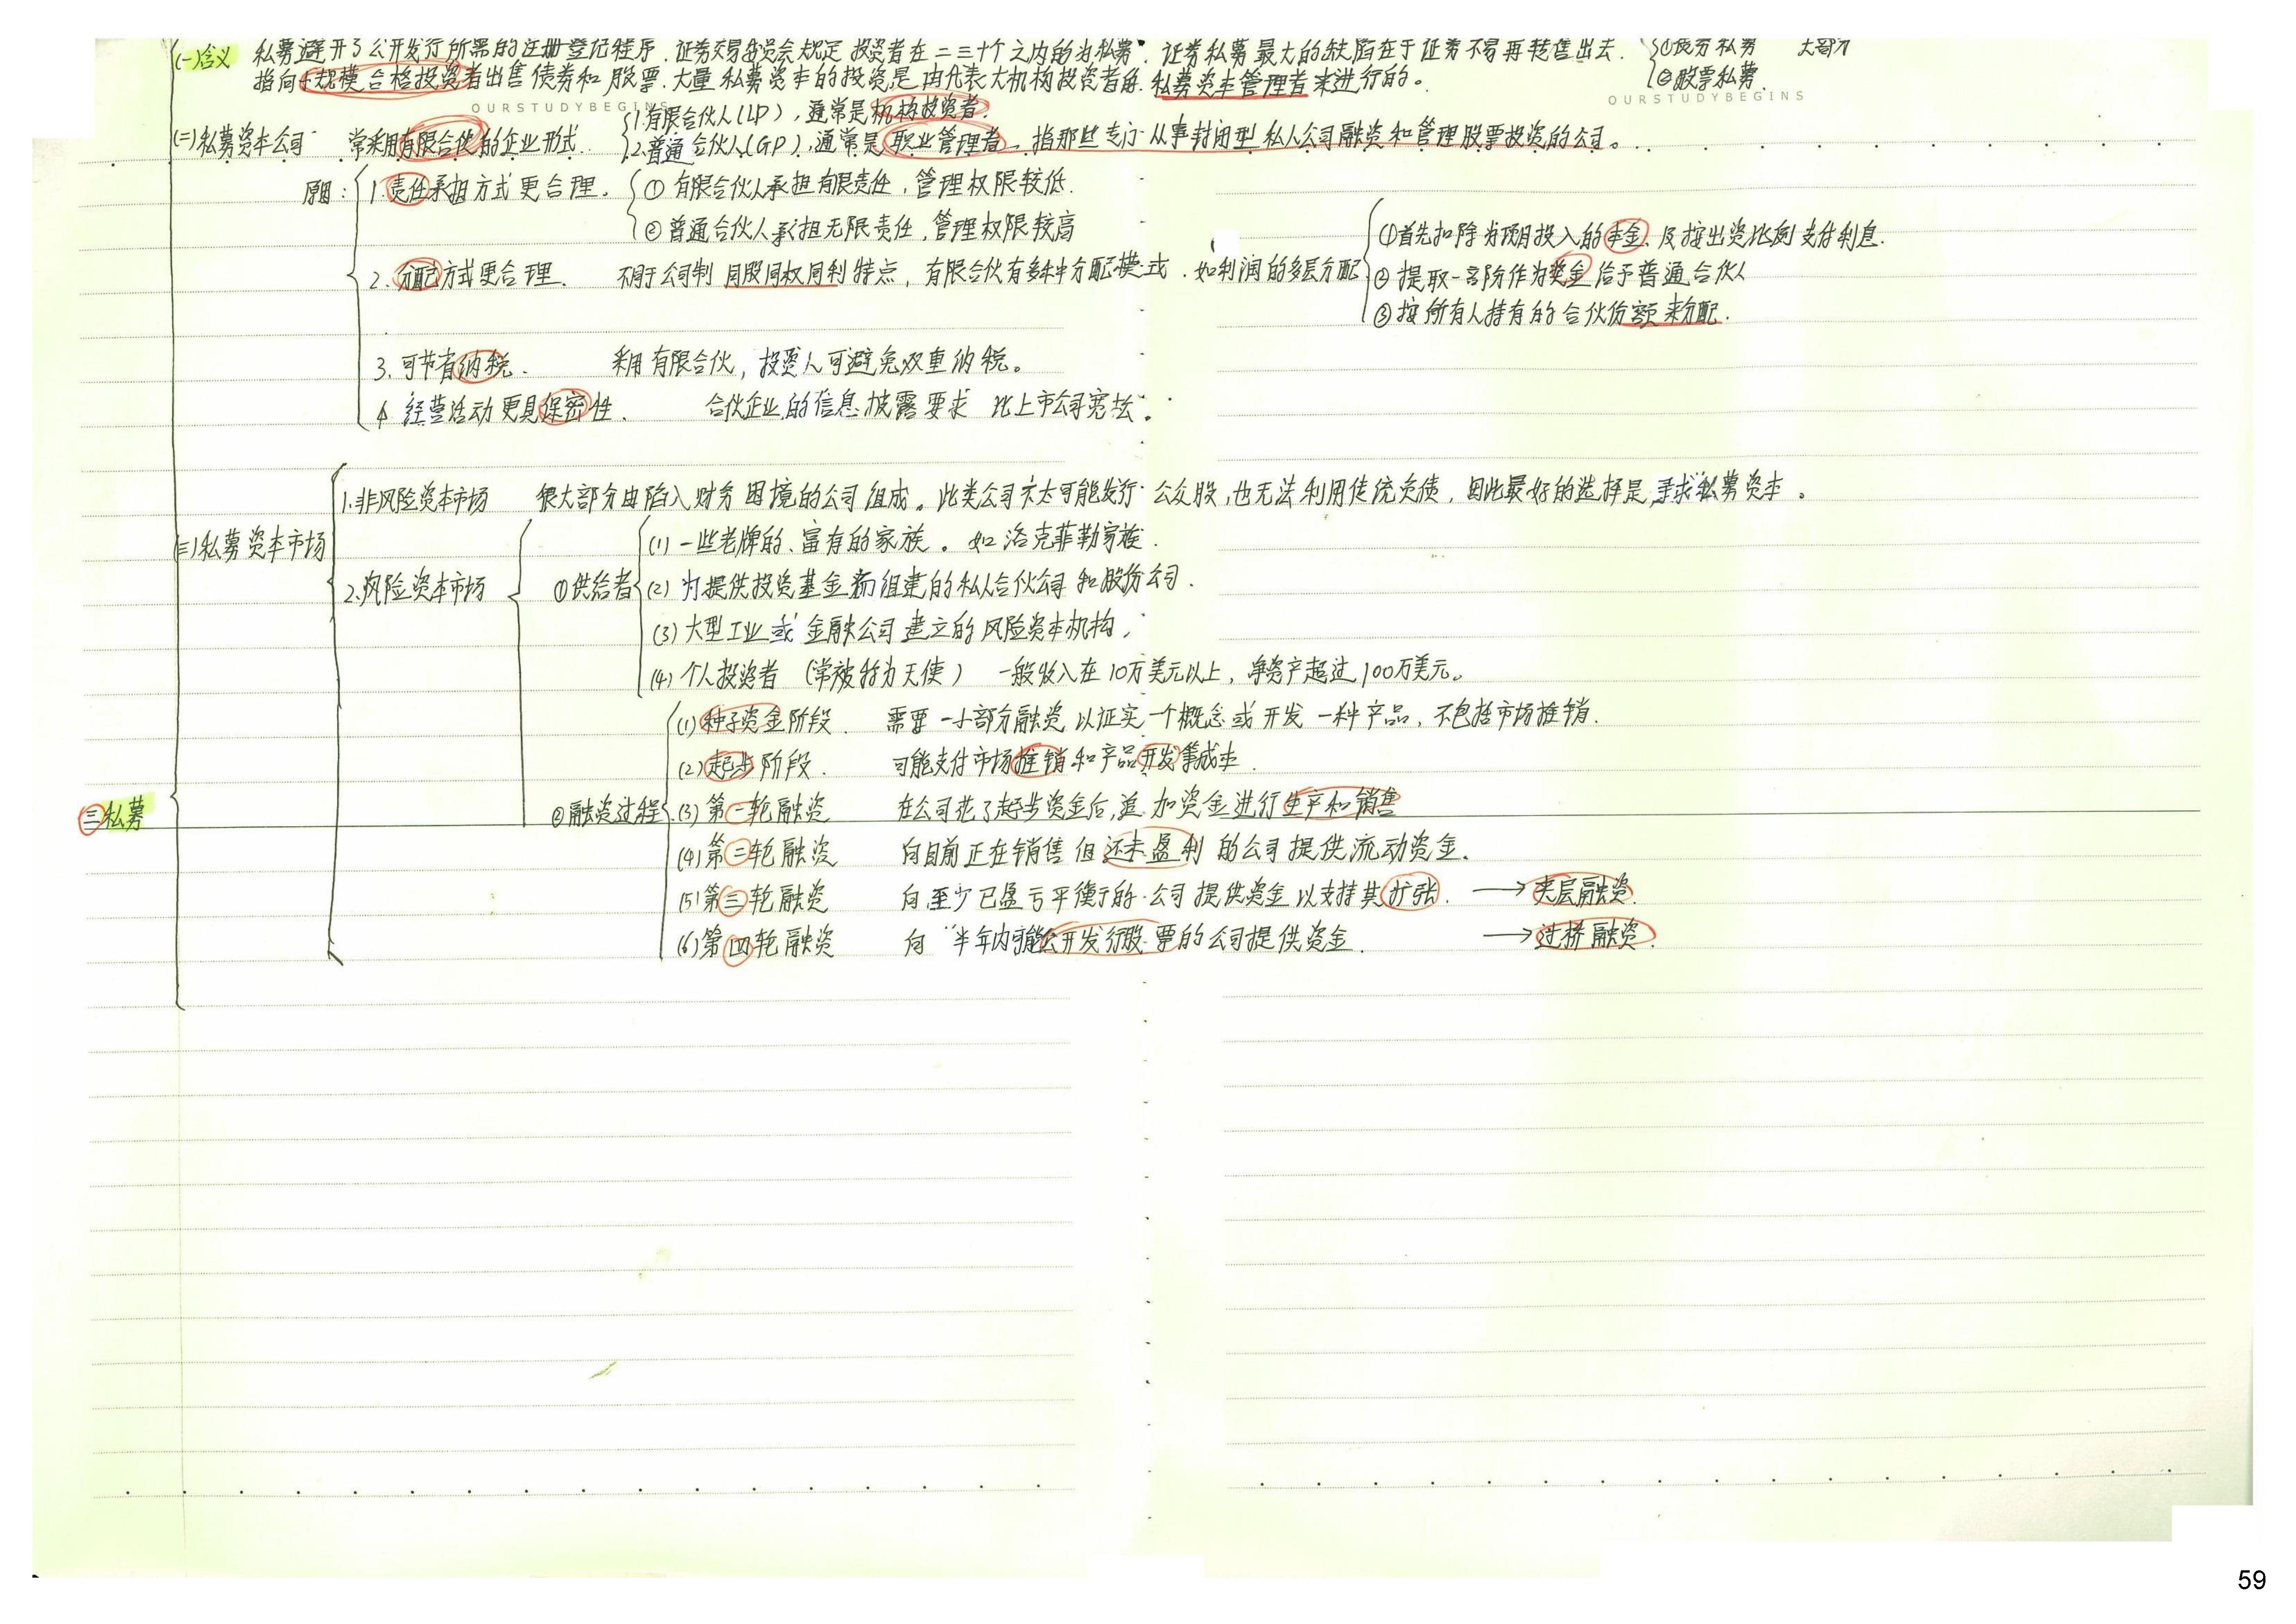 (一)含义 私募避开了公开发行所需的注册登记程序.证券交易委员会规定 投资者在二三十个之内的为私募.证券私募最大的缺陷在于证券不易再转售出去. ①债券私募 大部分
指向小规模合格投资者出售债券和股票.大量私募资本的投资是由代表大机构投资者的私募资本管理者来进行的。 ②股票私募.
OURSTUDYBEGINS OURSTUDYBEGINS
1.有限合伙人(LP),通常是机构投资者.
(二)私募资本公司 常采用有限合伙的企业形式.
2.普通合伙人(GP),通常是职业管理者,指那些专门从事封闭型私人公司融资和管理股票投资的公司。
原因: 1.责任承担方式更合理. ①有限合伙人承担有限责任,管理权限较低.
②普通合伙人承担无限责任,管理权限较高
①首先扣除为项目投入的本金、及按出资比例支付利息.
2.分配方式更合理. 不同于公司制同股同权同利特点,有限合伙有多种分配模式.如利润的多层分配 ②提取一部分作为奖金给予普通合伙人
③按所有人持有的合伙份额来分配.
3.可节省纳税. 采用有限合伙,投资人可避免双重纳税。
4.经营活动更具保密性. 合伙企业的信息披露要求比上市公司宽松.
(三)私募资本市场
1.非风险资本市场 很大部分由陷入财务困境的公司组成。此类公司不太可能发行公众股,也无法利用传统负债,因此最好的选择是寻求私募资本。
(1)一些老牌的、富有的家族。如洛克菲勒家族.
2.风险资本市场 ①供给者 (2)为提供投资基金新组建的私人合伙公司和股份公司.
(3)大型工业或金融公司建立的风险资本机构,
(4)个人投资者(常被称为天使) 一般收入在10万美元以上,净资产超过100万美元。
(1)种子资金阶段. 需要一小部分融资以证实一个概念或开发一种产品,不包括市场推销.
(2)起步阶段. 可能支付市场推销和产品开发等成本.
三 私募
②融资过程 (3)第一轮融资 在公司花了起步资金后,追加资金进行生产和销售
(4)第二轮融资 向目前正在销售但还未盈利的公司提供流动资金.
(5)第三轮融资 向至少已盈亏平衡的公司提供资金以支持其扩张. → 夹层融资.
(6)第四轮融资 向半年内可能公开发行股票的公司提供资金. → 过桥融资.
59